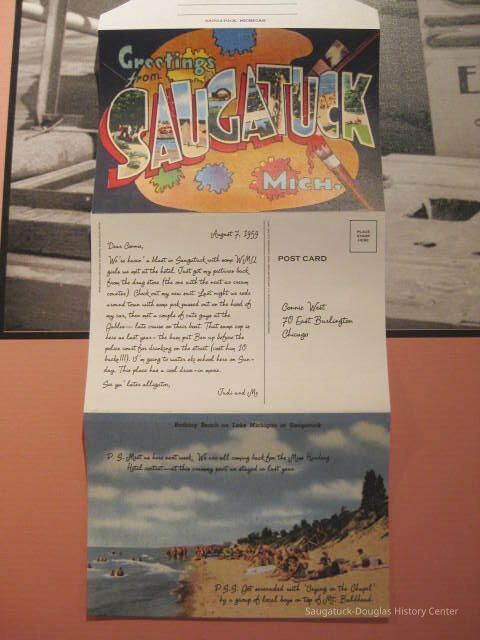 SAUGATUCK, MICHIGAN
Greetings
from
SAUGATUCK
MICH.
August 7, 1959
Dear Connie,
We're havin' a blast in Saugatuck with some WMU
girls we met at the hotel. Just got my pictures back
from the drug store (the one with the neat ice cream
counter). Check out my new suit. Last night we rode
around town with some jerk passed out on the hood of
my car, then met a couple of cute guys at the
late cruise on their boat. That same cop is
here as last year - the bum put Ben up before the
police court for drinking on the street (cost him 10
bucks!!!). I'm going to water ski school here on Sun-
day. This place has a cool drive-in movie.
See ya' later alligator,
Judi and Mo
PLACE
STAMP
HERE
POST CARD
Connie West
70 East Burlington
Chicago
Bathing Beach on Lake Michigan at Saugatuck
P. S. Meet us here next week. We are all coming back for the Miss
Hotel contest—at this crummy spot we stayed in last year.
P.S.S. Got serenaded with "Crying in the Chapel"
by a group of local boys on top of Mt. Baldhead.
Saugatuck-Douglas History Center